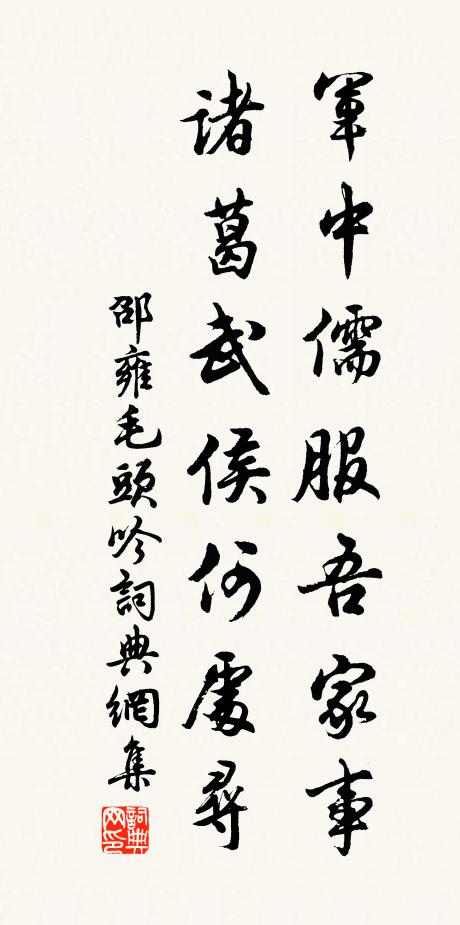 軍中儒服吾家事
諸葛武侯何處尋
邵雍毛頭吟詞典網集
詞典網印